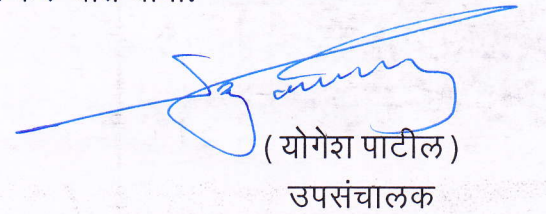 ( योगेश पाटील )
उपसंचालक